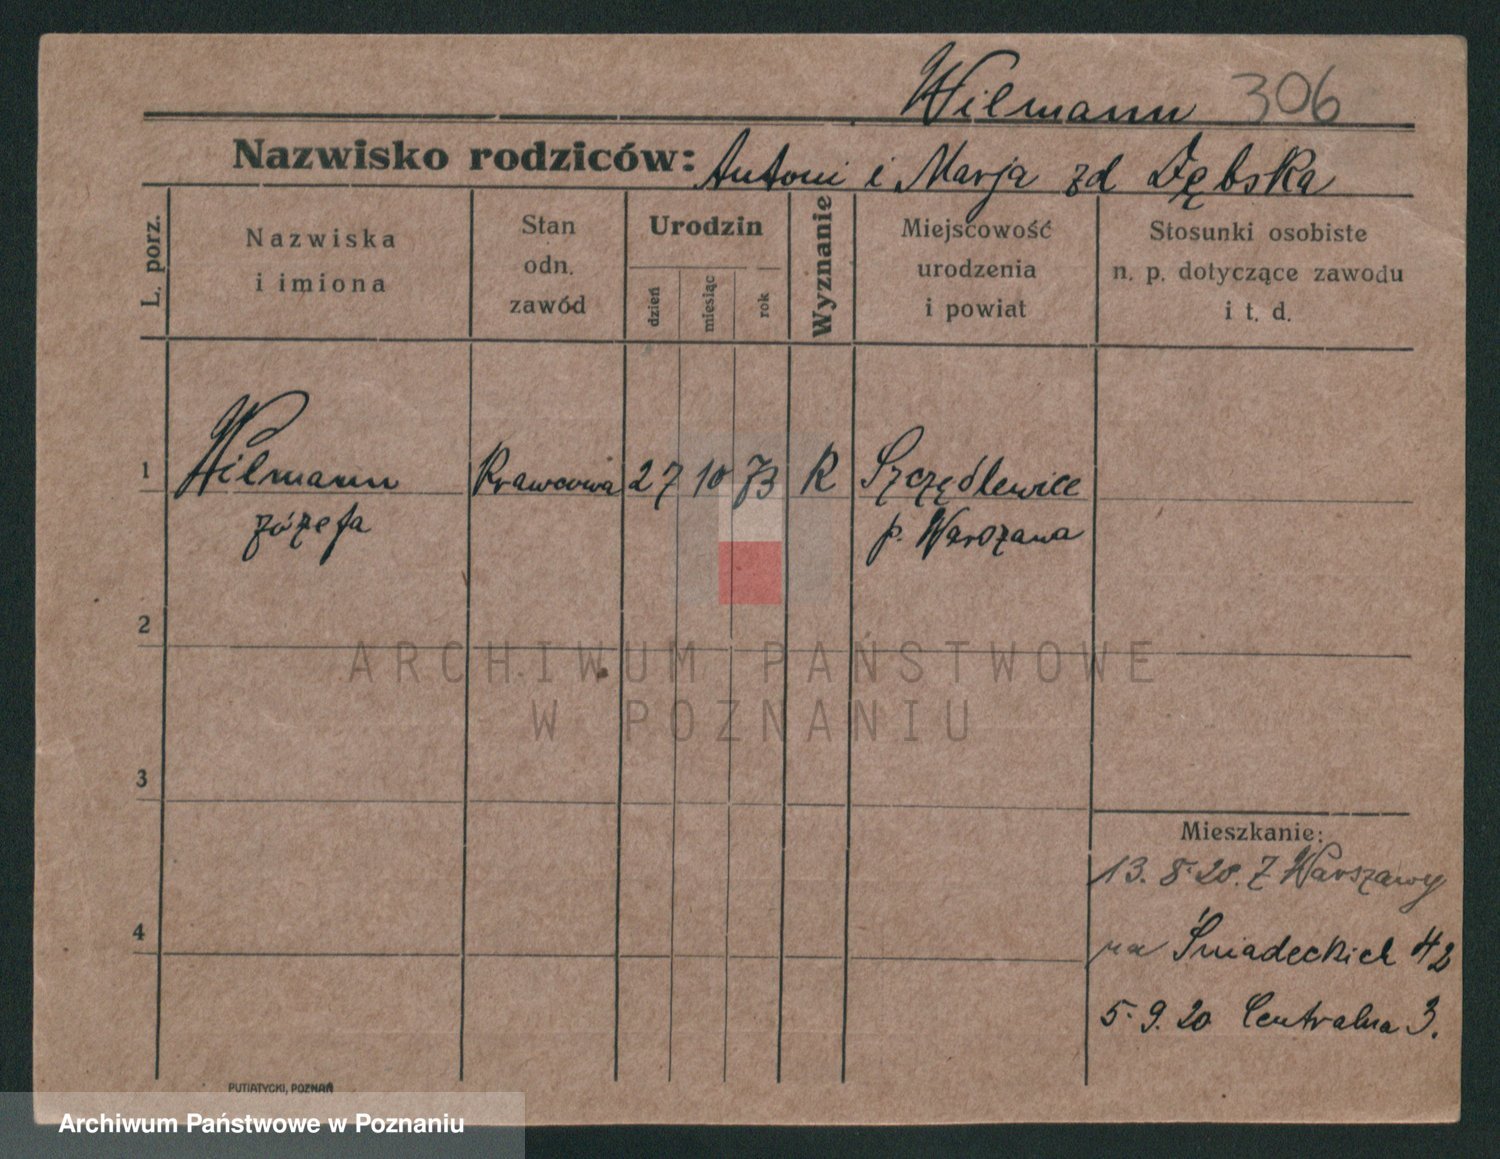 Wilmann 306
Nazwisko rodziców: Antoni i Marja zd Dębska
L. porz.
Nazwiska
i imiona
Stan
odn.
zawód
Urodzin
dzień
miesiąc
rok
Wyznanie
Miejscowość
urodzenia
i powiat
Stosunki osobiste
n. p. dotyczące zawodu
i t. d.
1 Wilmann Krawcowa 27 10 73 R Szczęślewice
Józefa p. Warszawa
2
ARCHIWUM PAŃSTWOWE
W POZNANIU
3
Mieszkanie:
13. 8. 20. Z Warszawy
4
na Śniadeckich 42
5. 9. 20 Centralna 3.
PUTIATYCKI, POZNAŃ
Archiwum Państwowe w Poznaniu